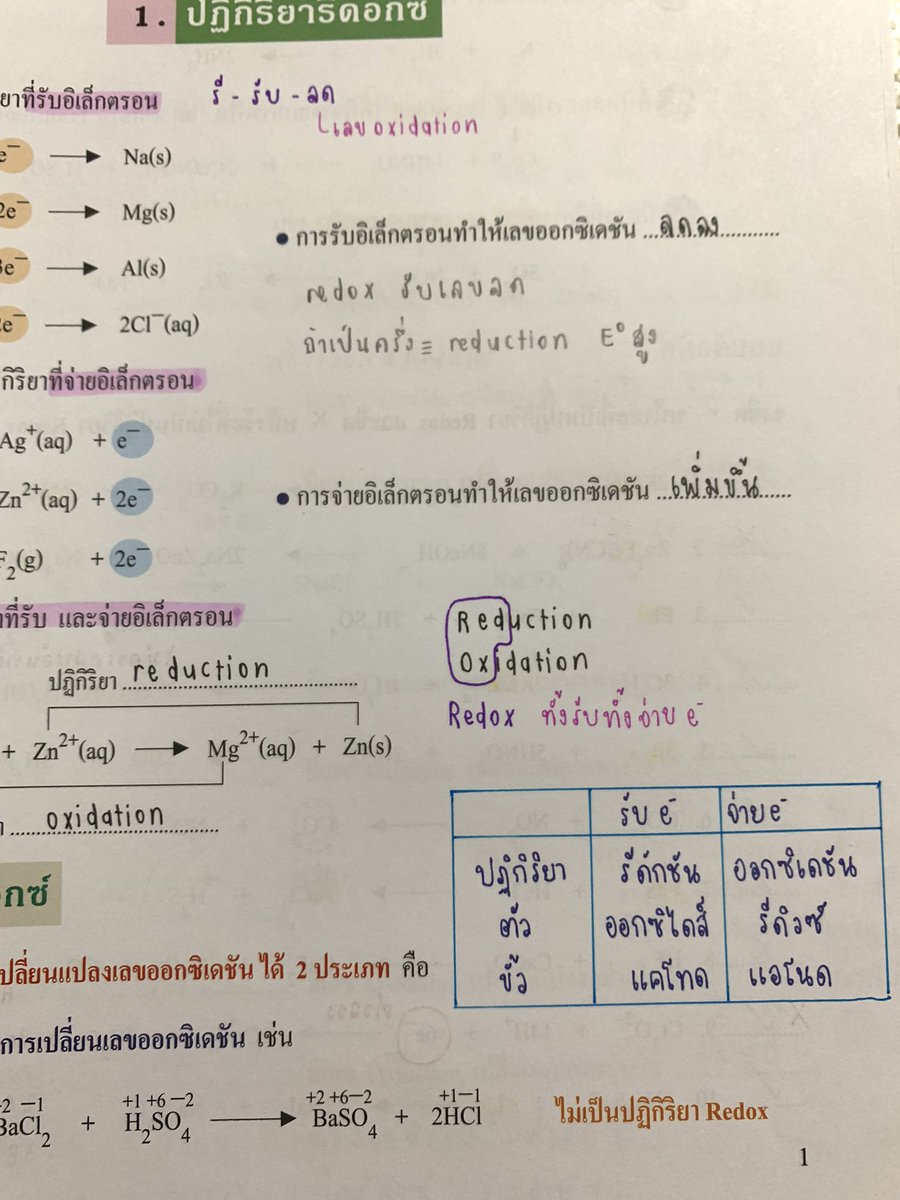 1. ปฏิกิริยารีดอกซ์
ยาที่รับอิเล็กตรอน
รี - รับ - ลด
เลข oxidation
e⁻ → Na(s)
2e⁻ → Mg(s)
3e⁻ → Al(s)
2e⁻ → 2Cl⁻(aq)
● การรับอิเล็กตรอนทำให้เลขออกซิเดชัน ...ลดลง...........
redox รับเลขลด
ถ้าเป็นครึ่ง ≡ reduction E° สูง
กิริยาที่จ่ายอิเล็กตรอน
Ag⁺(aq) + e⁻
Zn²⁺(aq) + 2e⁻
F₂(g) + 2e⁻
● การจ่ายอิเล็กตรอนทำให้เลขออกซิเดชัน ...เพิ่มขึ้น......
ที่รับ และจ่ายอิเล็กตรอน
Reduction
Oxidation
Redox ทั้งรับทั้งจ่าย e⁻
ปฏิกิริยา reduction
+ Zn²⁺(aq) → Mg²⁺(aq) + Zn(s)
oxidation
รับ e⁻ จ่าย e⁻
ปฏิกิริยา รีดักชัน ออกซิเดชัน
ตัว ออกซิไดส์ รีดิวซ์
ขั้ว แคโทด แอโนด
อกซ์
เปลี่ยนแปลงเลขออกซิเดชัน ได้ 2 ประเภท คือ
การเปลี่ยนเลขออกซิเดชัน เช่น
+2 −1 +1 +6 −2 +2 +6 −2 +1 −1
BaCl₂ + H₂SO₄ → BaSO₄ + 2HCl ไม่เป็นปฏิกิริยา Redox
1